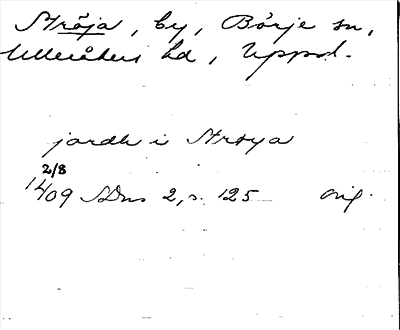 Ströja, by, Börje sn,
Ulleråkers hd, Uppl.
jordh i Strøya
2/8
1409 SDns 2, s. 125 orig.